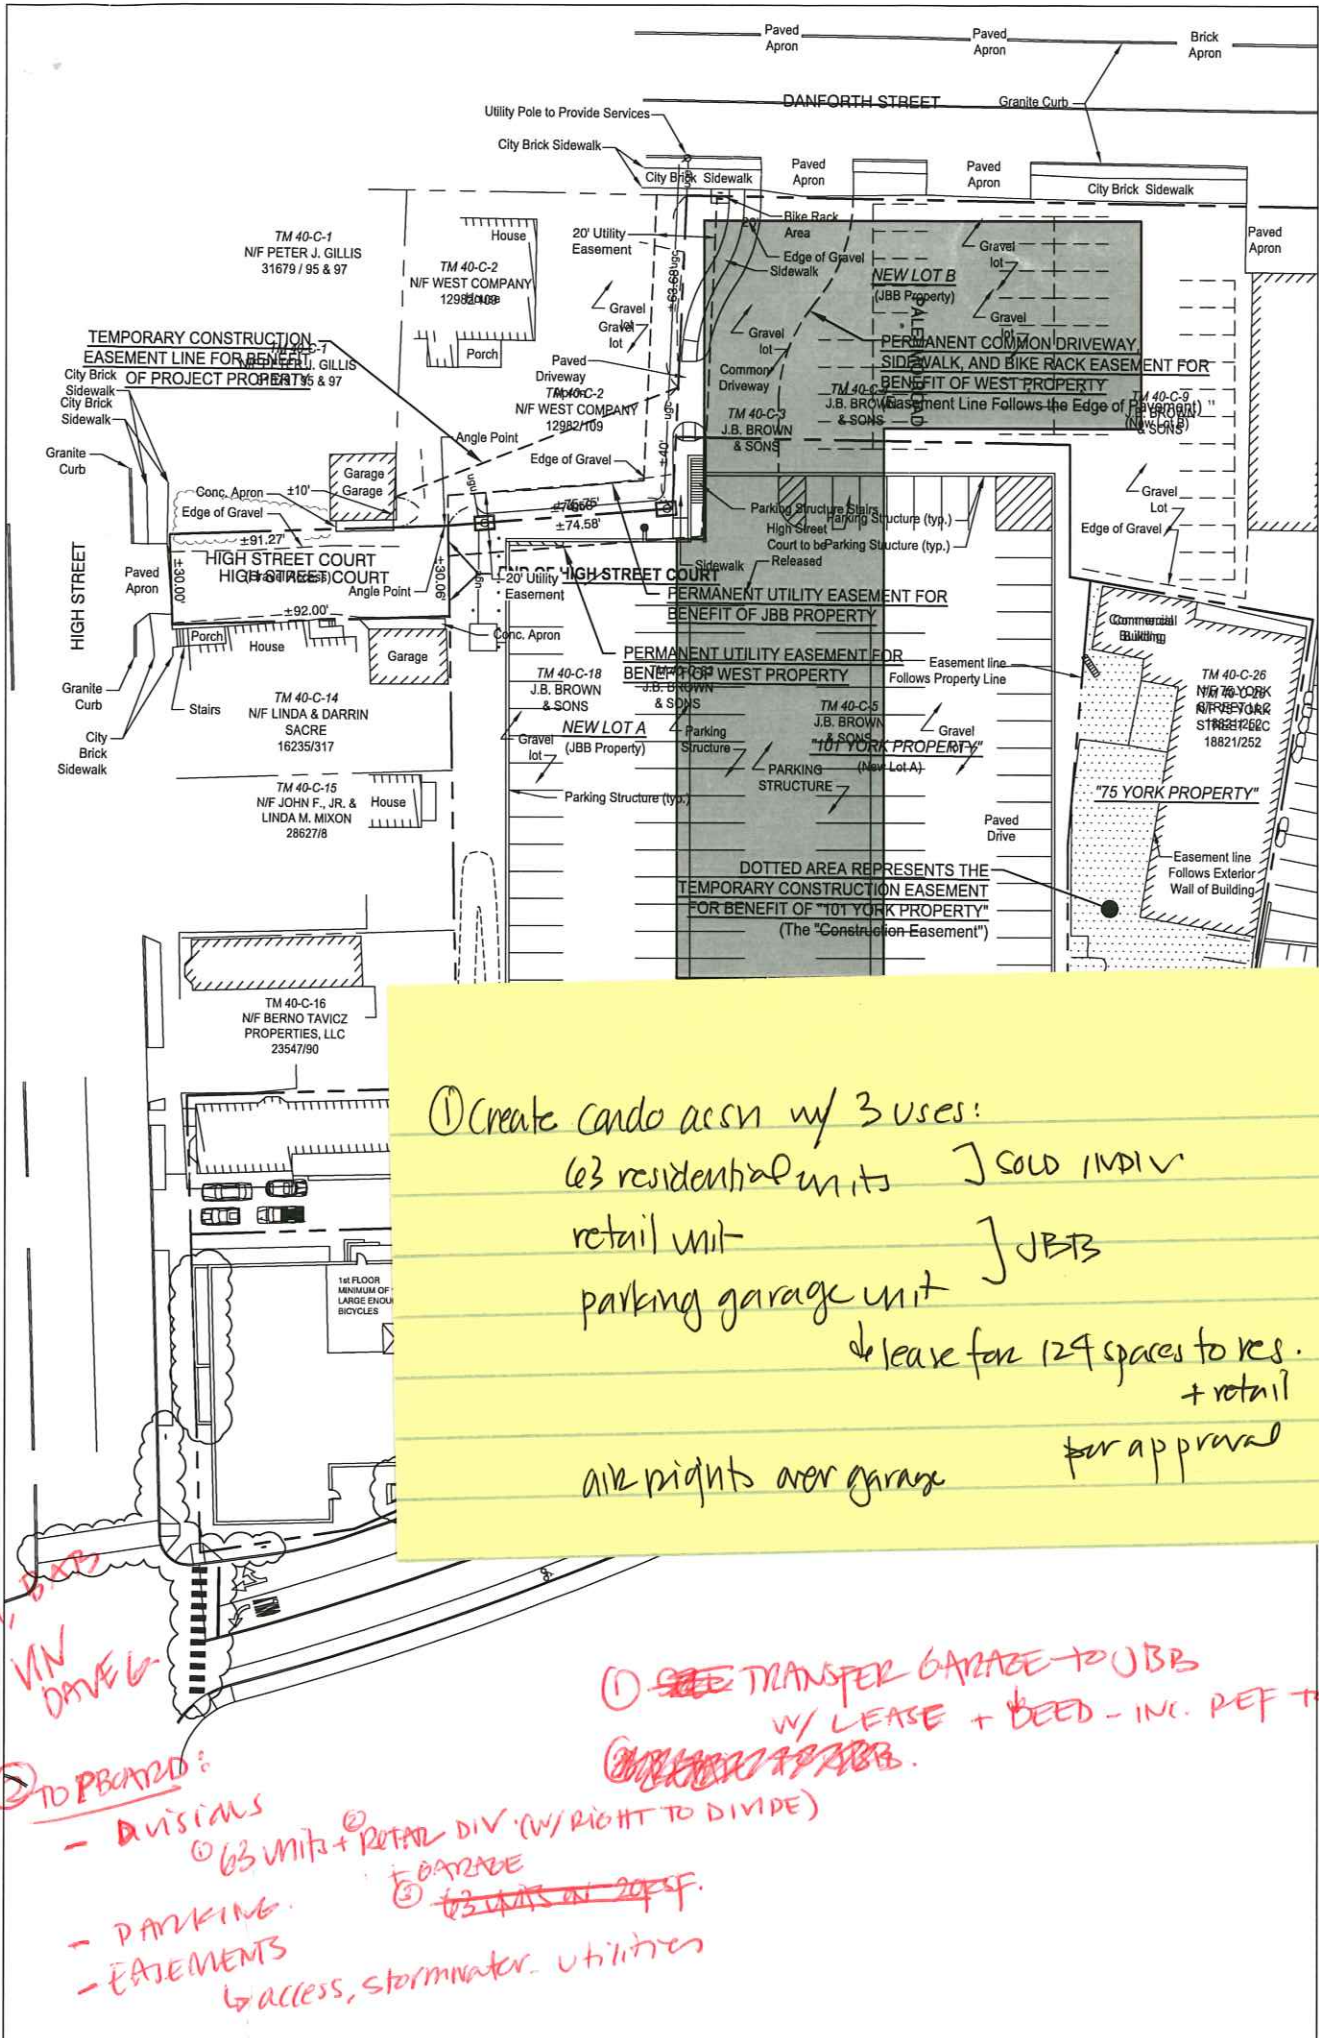 Paved
Apron
Paved
Apron
Brick
Apron
DANFORTH STREET
Granite Curb
Utility Pole to Provide Services
City Brick Sidewalk
City Brick Sidewalk
Paved
Apron
Paved
Apron
City Brick Sidewalk
Paved
Apron
TM 40-C-1
N/F PETER J. GILLIS
31679 / 95 & 97
House
TM 40-C-2
N/F WEST COMPANY
12982/109
Porch
20' Utility
Easement
Bike Rack
Area
20'
Edge of Gravel
Sidewalk
Gravel
lot
NEW LOT B
(JBB Property)
Gravel
lot
Gravel
lot
Gravel
lot
Gravel
lot
±63.68'
ugc
TEMPORARY CONSTRUCTION
EASEMENT LINE FOR BENEFIT
OF PROJECT PROPERTY
N/F PETER J. GILLIS
95 & 97
City Brick
Sidewalk
City Brick
Sidewalk
Granite
Curb
Paved
Driveway
N/F WEST COMPANY
12982/109
Common
Driveway
PERMANENT COMMON DRIVEWAY,
SIDEWALK, AND BIKE RACK EASEMENT FOR
BENEFIT OF WEST PROPERTY
(Easement Line Follows the Edge of Pavement)
(New Lot B)
TM 40-C-3
J.B. BROWN
& SONS
J.B. BROWN
& SONS
TM 40-C-9
J.B. BROWN
& SONS
ugc
±40'
Angle Point
Edge of Gravel
Garage
Garage
Conc. Apron
±10'
Edge of Gravel
ugn
±74.58'
Parking Structure Stairs
Parking Structure (typ.)
High Street
Court to be
Released
Parking Structure (typ.)
Gravel
Lot
Edge of Gravel
HIGH STREET
Paved
Apron
±91.27'
±30.00'
HIGH STREET COURT
HIGH STREET COURT
±30.06'
Angle Point
±92.00'
20' Utility
Easement
END OF HIGH STREET COURT
Sidewalk
PERMANENT UTILITY EASEMENT FOR
BENEFIT OF JBB PROPERTY
Porch
House
Garage
Conc. Apron
PERMANENT UTILITY EASEMENT FOR
BENEFIT OF WEST PROPERTY
Easement line
Follows Property Line
Commercial
Building
Granite
Curb
Stairs
City
Brick
Sidewalk
TM 40-C-14
N/F LINDA & DARRIN
SACRE
16235/317
TM 40-C-18
J.B. BROWN
& SONS
J.B. BROWN
& SONS
TM 40-C-5
J.B. BROWN
& SONS
NEW LOT A
(JBB Property)
Gravel
lot
Parking
Structure
"101 YORK PROPERTY"
(New Lot A)
Gravel
lot
PARKING
STRUCTURE
TM 40-C-26
N/F 75 YORK
STREET LLC
18821/252
"75 YORK PROPERTY"
TM 40-C-15
N/F JOHN F., JR. &
LINDA M. MIXON
28627/8
House
Parking Structure (typ.)
Paved
Drive
Easement line
Follows Exterior
Wall of Building
DOTTED AREA REPRESENTS THE
TEMPORARY CONSTRUCTION EASEMENT
FOR BENEFIT OF "101 YORK PROPERTY"
(The "Construction Easement")
TM 40-C-16
N/F BERNO TAVICZ
PROPERTIES, LLC
23547/90
1st FLOOR
MINIMUM OF
LARGE ENOU
BICYCLES
① Create condo assn w/ 3 uses:
63 residential units ] SOLD INDIV
retail unit
parking garage unit ] JBB
↳ lease for 124 spaces to res.
+ retail
per approval
air rights over garage
BXB
VIN
DAVE G
① TRANSFER GARAGE TO JBB
W/ LEASE + DEED - INC. REF TO
② TO PBOARD:
- DIVISIONS
① 63 units + ② RETAIL DIV (W/ RIGHT TO DIVIDE)
+ GARAGE
③
- PARKING.
- EASEMENTS
↳ access, stormwater. utilities